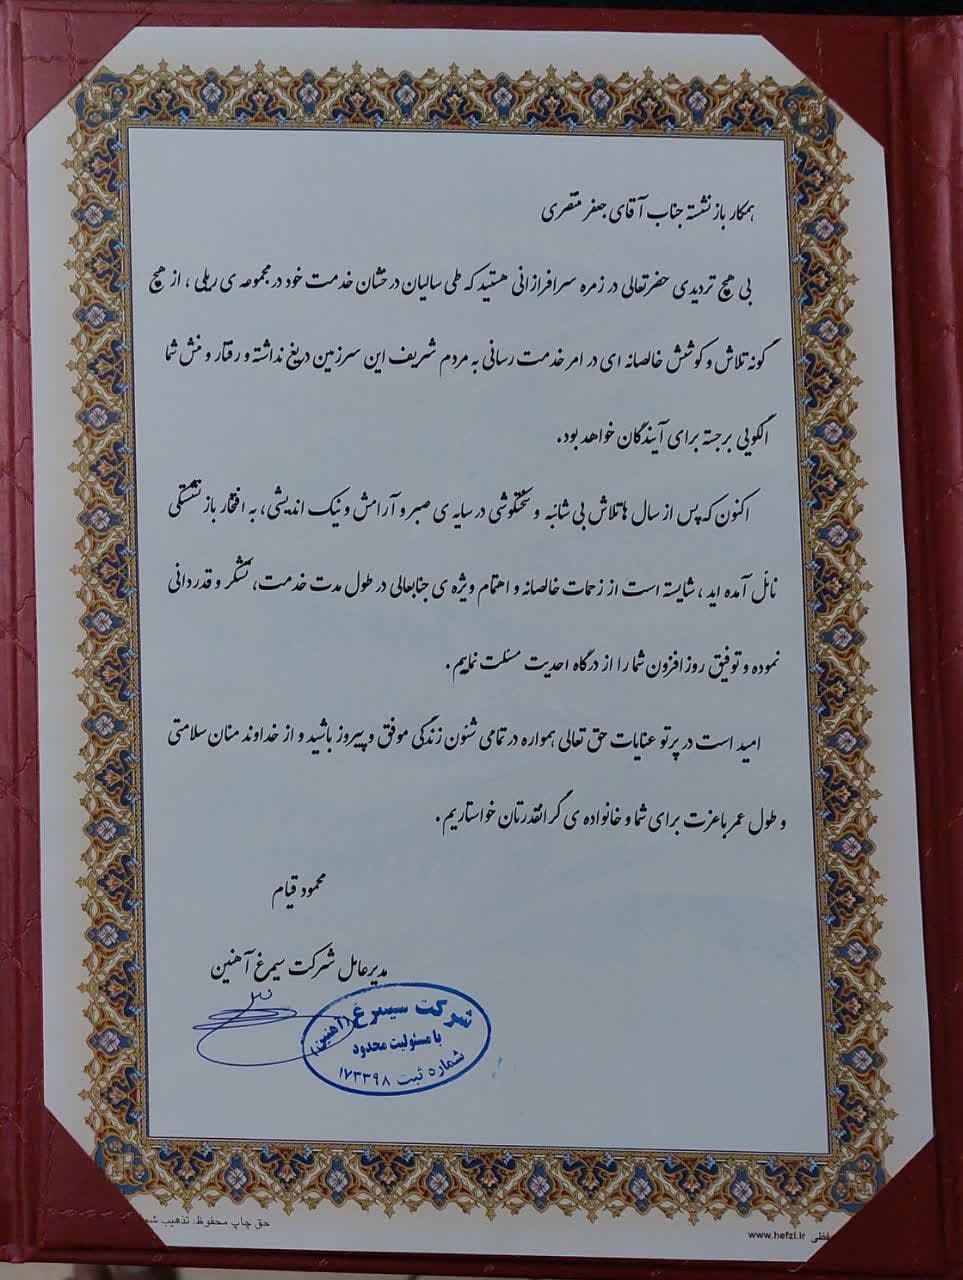 همکار بازنشسته جناب آقای جعفر منتصری
بی هیچ تردیدی حضرتعالی در زمره سرافرازانی هستید که طی سالیان درخشان خدمت خود در مجموعه ی ریلی ، از هیچ
گونه تلاش و کوشش خالصانه ای در امر خدمت رسانی به مردم شریف این سرزمین دریغ نداشته و رفتار و منش شما
الگویی برجسته برای آیندگان خواهد بود.
اکنون که پس از سال ها تلاش بی شائبه و سختکوشی در سایه ی صبر و آرامش و نیک اندیشی، به افتخار بازنشستگی
نائل آمده اید ، شایسته است از زحمات خالصانه و اهتمام ویژه ی جنابعالی در طول مدت خدمت، تشکر و قدردانی
نموده و توفیق روز افزون شما را از درگاه احدیت مسئلت نماییم.
امید است در پرتو عنایات حق تعالی همواره در تمامی شئون زندگی موفق و پیروز باشید و از خداوند منان سلامتی
و طول عمر باعزت برای شما و خانواده ی گرانقدرتان خواستاریم.
محمود قیام
مدیرعامل شرکت سیمرغ آهنین
شرکت سیمرغ (آهنین)
با مسئولیت محدود
شماره ثبت ۱۷۳۳۹۸
حق چاپ محفوظ. تذهیب
www.hefzi.ir